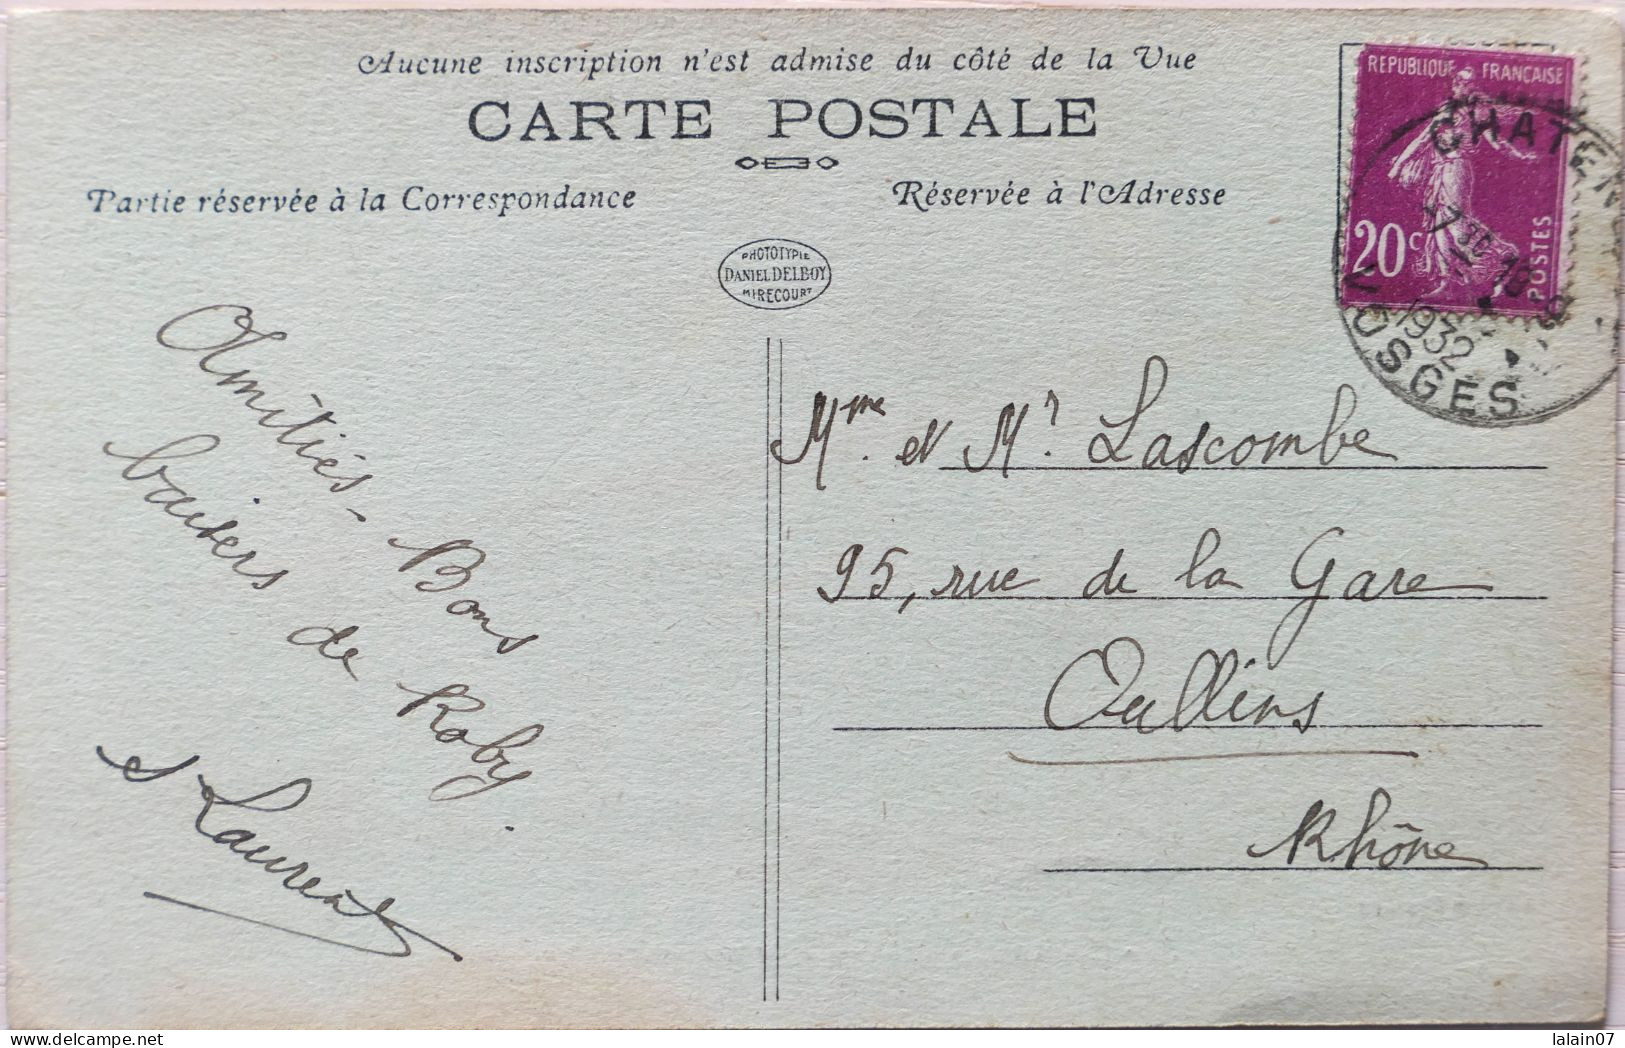 Aucune inscription n'est admise du côté de la Vue
CARTE POSTALE
Partie réservée à la Correspondance
Réservée à l'Adresse
PHOTOTYPIE
DANIEL DELBOY
MIRECOURT
REPUBLIQUE FRANÇAISE
20c
POSTES
CHATEN
VOSGES
1932
Amitiés - Bons
baisers de Roby.
et Laurent
Mme et Mr Lascombe
95, rue de la Gare
Oullins
Rhône
delcampe.net
lalain07